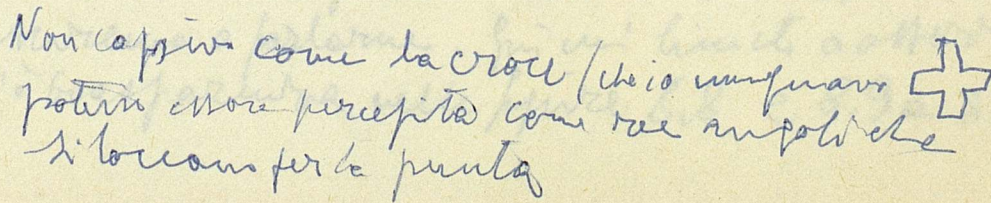 Non capivo come la croce (che io immaginavo
potesse essere percepita come angoli che
si toccano per la punta